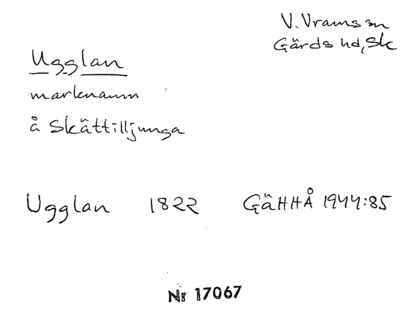 V. Vrams sn
Gärds hd, Sk
Ugglan
marknamn
å Skättilljunga
Ugglan 1822 GäHHÅ 1944:85
Nr 17067